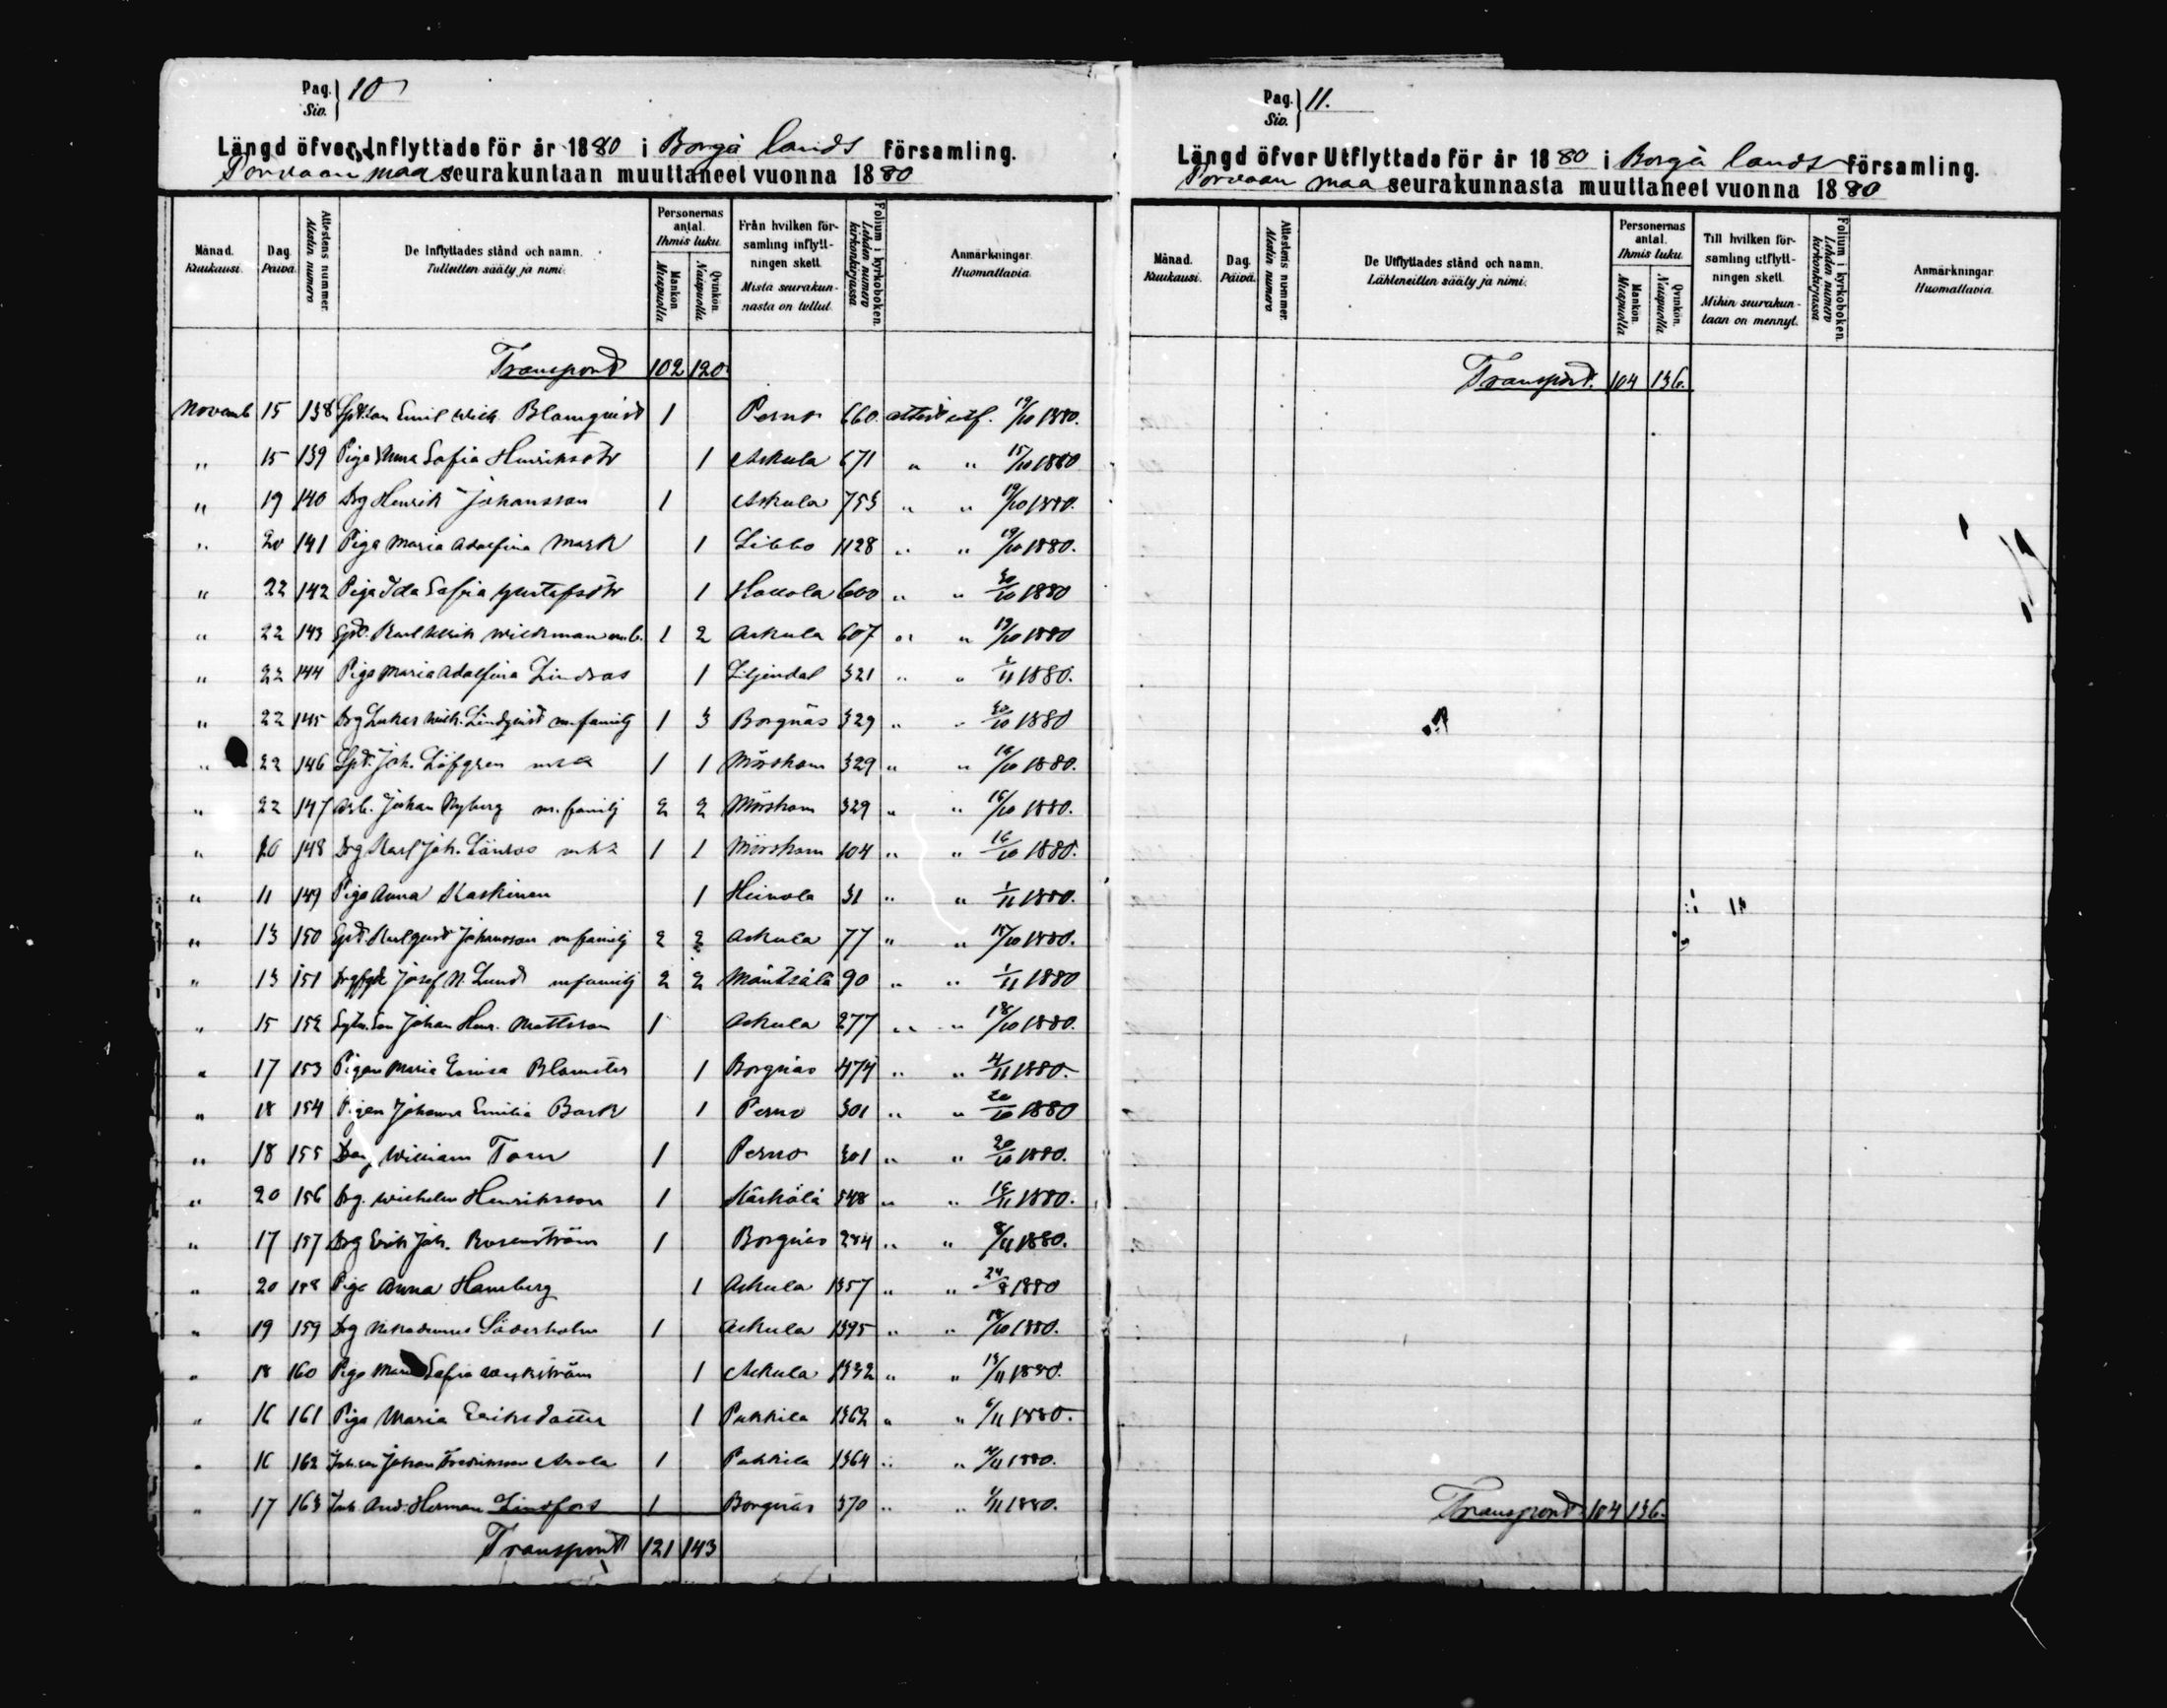 Pag. Siv. 10
Längd öfver Inflyttade för år 1880 i Borgå lands församling.
Porvoon maa seurakuntaan muuttaneet vuonna 1880
Månad. Kuukausi. Dag. Päivä. Attestens nummer. Atestin numero De Inflyttades stånd och namn. Tulleitten sääty ja nimi. Personernas antal. Ihmis luku. Mankön. Miespuolia Qvinkön. Naispuolia Från hvilken församling inflyttningen skett. Mistä seurakunnasta on tullut. Folium i kyrkoboken. Lehden numero kirkonkirjassa Anmärkningar. Huomattavia.
Transport 102 120
Novemb 15 138 Emil Wilh. Blomqvist 1 Perno 660 attest utf. 19/10 1880.
" 15 139 Piga Anna Sofia Henriksdtr 1 Askula 671 " " 15/10 1880
" 19 140 Drg Henrik Johansson 1 Askula 753 " " 19/10 1880.
" 20 141 Piga Maria Adolfina Mark 1 Sibbo 1128 " " 19/10 1880.
" 22 142 Piga Ida Sofia Gustafsdtr 1 Hollola 600 " " 30/10 1880
" 22 143 Karl Wickman 1 2 Askula 607 " " 19/10 1880
" 22 144 Piga Maria Adolfina Lindroos 1 Liljendal 321 " " /11 1880.
" 22 145 Drg Lukas Wilh. Lindqvist m. familj 1 3 Borgnäs 329 " " 30/10 1880
" 22 146 Joh. Löfgren 1 1 Mörskom 329 " " 16/10 1880.
" 22 147 Arb. Johan Nyberg m. familj 2 2 Mörskom 329 " " 16/10 1880.
" 20 148 Drg Karl Joh. 1 1 Mörskom 104 " " 16/10 1880.
" 11 149 Piga Anna Kaskinen 1 Heinola 31 " " 1/11 1880.
" 13 150 Karl Gust Johansson m familj 2 2 Askula 77 " " 18/10 1880.
" 13 151 Josef N. Lund m familj 2 2 Mäntsälä 90 " " 1/11 1880
" 15 152 Johan Henr. Mattsson 1 Askula 277 " " 18/10 1880.
" 17 153 Pigan Maria Lovisa Blomster 1 Borgnäs 474 " " 4/11 1880.
" 18 154 Pigan Johanna Emilia Bark 1 Perno 301 " " 20/10 1880
" 18 155 Dräng William Torn 1 Perno 301 " " 20/10 1880.
" 20 156 Drg. Wilhelm Henriksson 1 Kärkölä 548 " " /11 1880.
" 17 157 Drg Erik Joh. Rosenström 1 Borgnäs 284 " " 8/11 1880.
" 20 158 Piga Anna Hamberg 1 Askula 1357 " " 24/8 1880
" 19 159 Drg Nikodemus Söderholm 1 Askula 1395 " " 18/10 1880.
" 18 160 Piga Sofia 1 Askula 1332 " " 13/11 1880.
" 16 161 Piga Maria Eriksdotter 1 Pukkila 1362 " " 6/11 1880.
" 16 162 Johan Fredriksson Arola 1 Pukkila 1364 " " /11 1880.
" 17 163 And. Herman Lindfors 1 Borgnäs 370 " " /11 1880.
Transport 121 143
Pag. Siv. 11.
Längd öfver Utflyttade för år 1880 i Borgå lands församling.
Porvoon maa seurakunnasta muuttaneet vuonna 1880
Månad. Kuukausi. Dag. Päivä. Attestens nummer. Atestin numero De Utflyttades stånd och namn. Lähteneitten sääty ja nimi. Personernas antal. Ihmis luku. Mankön. Miespuolia Qvinkön. Naispuolia Till hvilken församling utflyttningen skett. Mihin seurakuntaan on mennyt. Folium i kyrkoboken. Lehden numero kirkonkirjassa Anmärkningar. Huomattavia.
Transport. 104 136.
Transport 104 136.